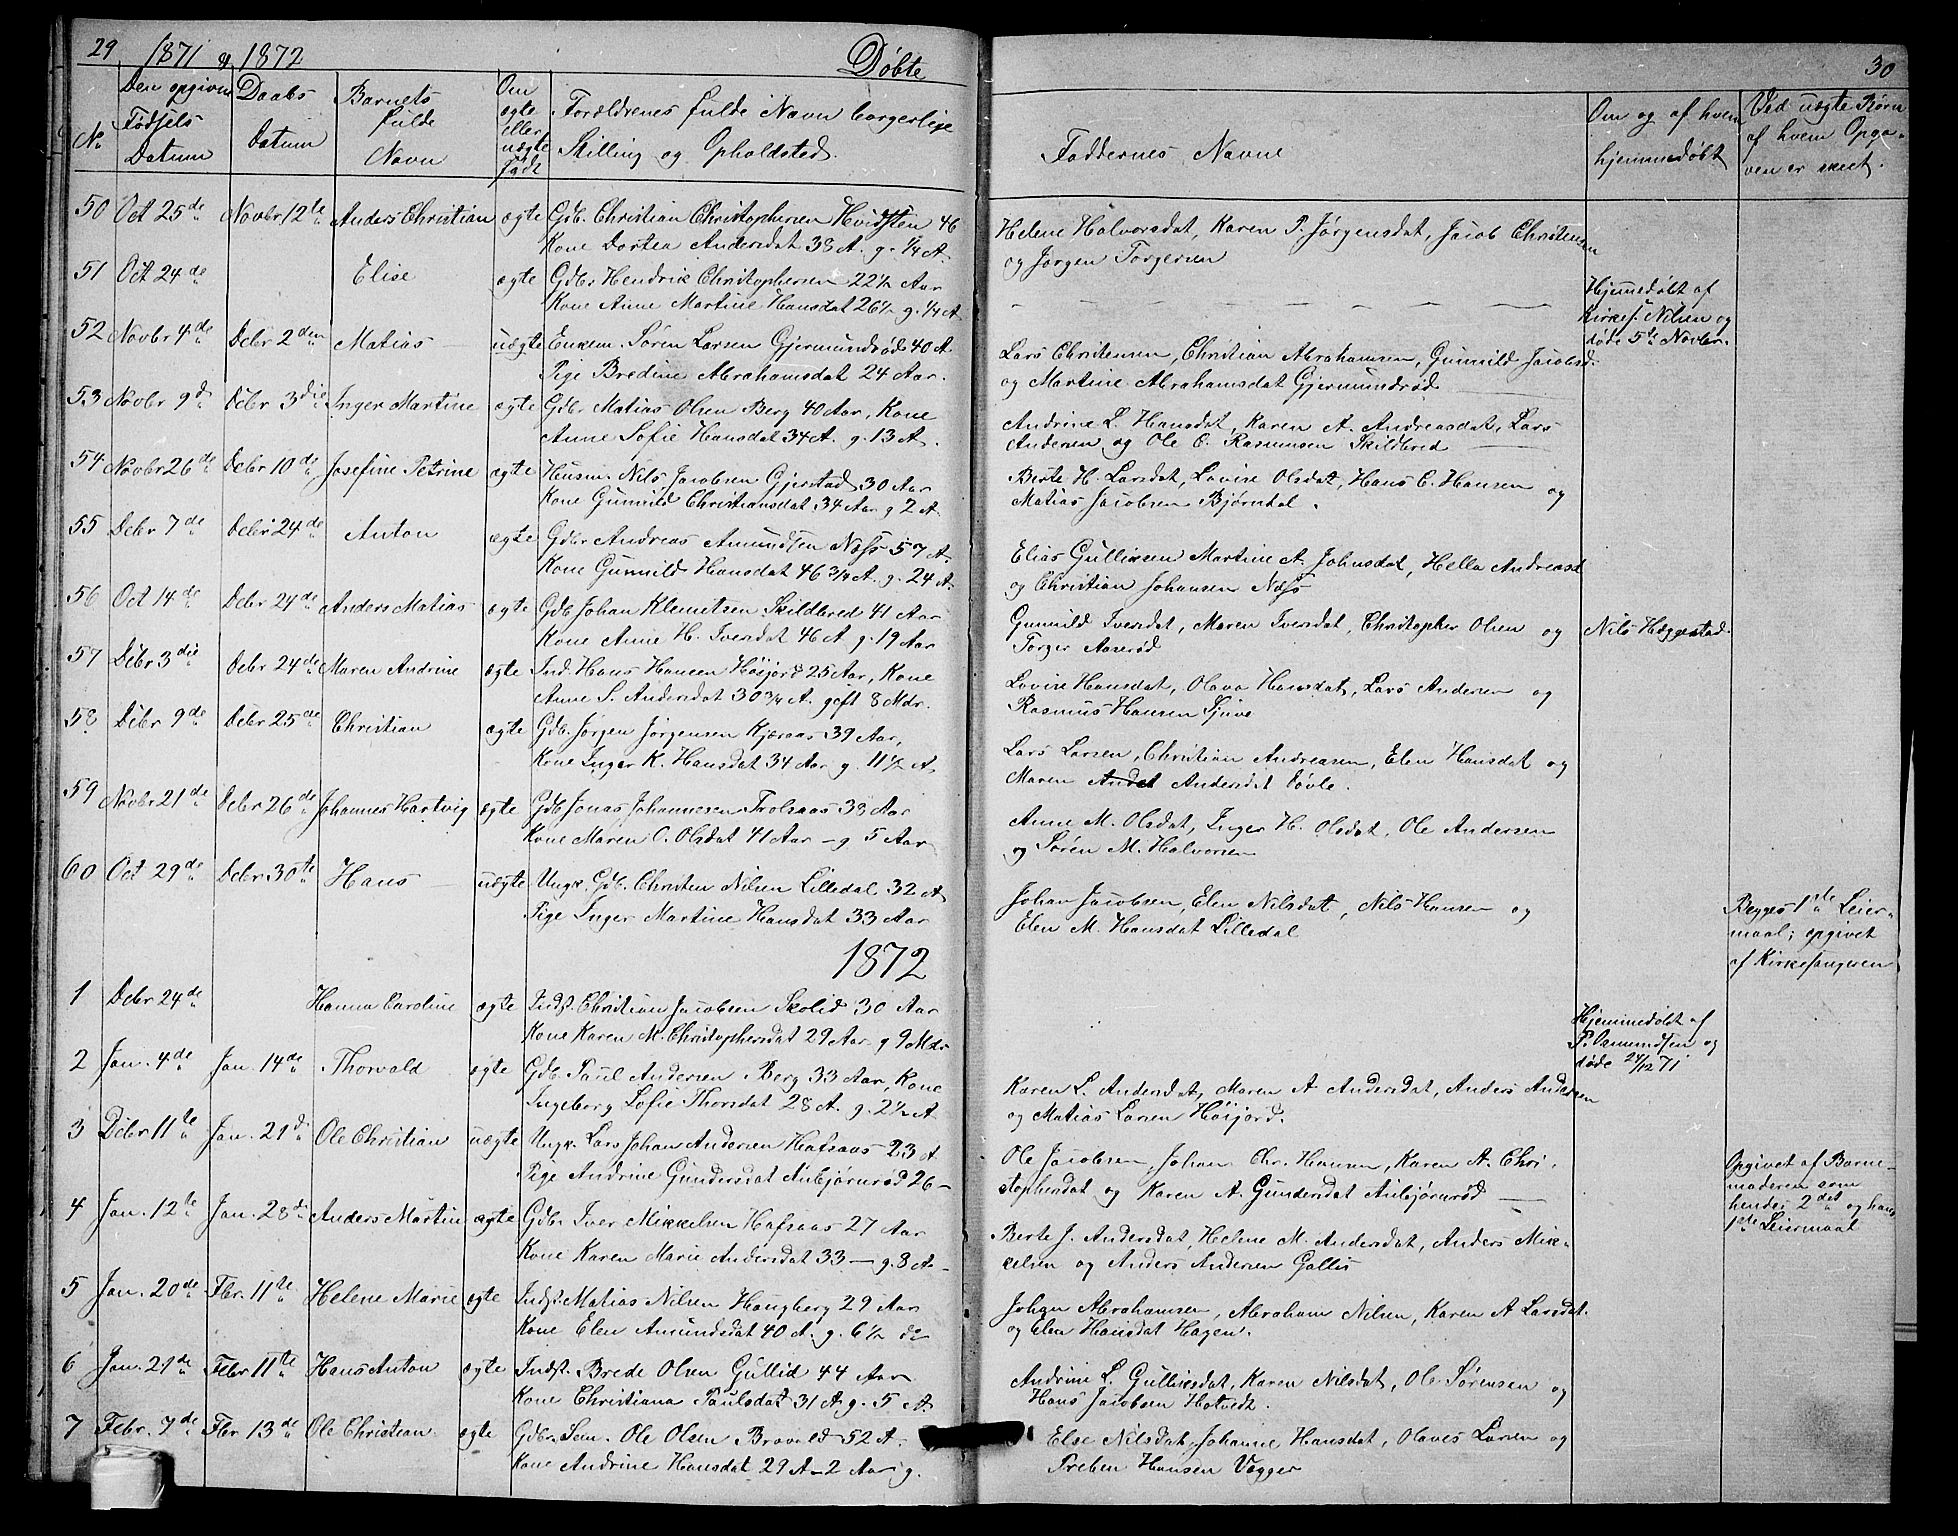 29 1871 & 1872 Døbte 30
No
Den opgivne Fødsels Datum
Daabs Datum
Barnets fulde Navn
Om ægte eller uægte Født
Forældrenes fulde Navn borgerlige Stilling og Opholdsted.
Faddernes Navne
Om og af hvem hjemmedøbt
Ved uægte Børn af hvem Opgaven er skeet.
50 Oct 25de Novbr 12te Anders Christian ægte Gdb. Christian Christophersen Hvidsten 46
Kone Dortea Andersdat 38 A. g. 1/4 A.
Helene Halvorsdat, Karen P. Jørgensdat, Jacob Christensen
og Jørgen Torgersen
51 Oct 24de Elise ægte Gdbr Hendrik Christophersen 22 1/2 Aar
Kone Anne Martine Hansdat 26 1/2 g. 1/4 A
Hjemmedøbt af
Kirkes. Nilsen og
døde 5te Novbr.
52 Novbr 4de Debr 2den Matias uægte Enkem. Søren Larsen Gjermundrød 40 A.
Pige Bredine Abrahamsdat 24 Aar.
Lars Christensen, Christian Abrahamsen, Gunnild Jacobsd.
og Martine Abrahamsdat Gjermundrød
53 Novbr 9d Debr 3die Inger Martine ægte Gdbr Matias Olsen Berg 40 Aar, Kone
Anne Sofie Hansdat 34 A. g. 13 A.
Andrine L. Hansdat, Karen A. Andreasdat, Lars
Andersen og Ole C. Rasmusen Skildbred
54 Novbr 26de Debr 10de Josefine Petrine ægte Husm. Nils Jacobsen Gjerstad 30 Aar
Kone Gunnild Christiansdat 34 Aar g 2 A
Berte H. Larsdat, Lovise Olsdat, Hans C. Hansen og
Matias Jacobsen Bjørndal.
55 Debr 7de Debr 24de Anton ægte Gdbr Andreas Amundsen Næss 57 A.
Kone Gunnild Hansdat 46 3/4 A. g. 24 A.
Elias Gulliksen Martine A. Johnsdat, Hella Andreasd
og Christian Johansen Næss
56 Oct 14de Debr 24de Anders Matias ægte Gdb Johan Klemetsen Skildbred 41 Aar
Kone Anne H. Iversdat 46 A g. 19 Aar
Gunnild Iversdat, Maren Iversdat, Christopher Olsen og
Torger Aaserød
Nils Heggestad.
57 Debr 3die Debr 24de Maren Andrine ægte Ind. Hans Hansen Høijord 25 Aar, Kone
Anne S. Andersdat 30 3/4 A. geft 8 Mdr.
Lovise Hansdat, Olava Hansdat, Lars Andersen og
Rasmus Hansen Sjuve
58 Debr 9de Debr 25de Christian ægte Gdb. Jørgen Jørgensen Kjæraas 39 Aar,
Kone Inger K. Hansdat 34 Aar g. 11 1/2 A.
Lars Larsen, Christian Andreasen, Elen Hansdat og
Maren Andet Andersdat Døvle.
59 Novbr 21de Debr 26de Johannes Hartvig ægte Gdb Jonas Johannesen Trolsaas 38 Aar
Kone Maren O. Olsdat 41 Aar - g 5 Aar
Anne M. Olsdat, Inger H. Olsdat, Ole Andersen
og Søren M. Halvorsen
60 Oct 29de Debr 30te Hans uægte Ungk. Gdb. Christen Nilsen Lilledal 32 A
Pige Inger Martine Hansdat 33 Aar
Johan Jacobsen, Elen Nilsdatt, Nils Hansen og
Elen M. Hansdat Lilledal
Begges 1ste Leier-
maal; opgivet
af Kirkesangeren
1872
1 Debr 24de Hanna Caroline ægte Indst. Christian Jacobsen Skolid 30 Aar
Kone Karen M. Christophersdat 29 Aar g 9 Mdr
Hjemmedøbt af
P. Amundsen og
døde 24/12 71
2 Jan. 4de Jan. 14de Thorvald ægte Gdb. Paul Andersen Berg 33 Aar, Kone
Ingeborg Sofie Thorsdat 28 A. g. 2 1/2 A
Karen L. Andersdat, Maren A Andersdat, Anders Andersen
og Matias Larsen Høijord.
3 Debr 11te Jan. 21d Ole Christian uægte Ungk. Lars Johan Andersen Hafsaas 23 A
Pige Andrine Gundersdat Anbjørnrød 26 -
Ole Jacobsen, Johan Chr. Hansen, Karen A. Chri-
stophersdat og Karen A. Gundersdat Anbjørnrød
Opgivet af Barne-
moderen som
hendes 2det og hans
1ste Leiermaal
4 Jan. 12te Jan. 28de Anders Martin ægte Gdbr Iver Mikkelsen Hafsaas 27 Aar
Kone Karen Marie Andersdat 33 - g. 8 A -
Berte J. Andersdat, Helene M. Andersdat, Anders Mik-
kelsen og Anders Andersen Gallis
5 Jan. 20de Fbr. 11te Helene Marie ægte Indst. Matias Nilsen Haugberg 29 Aar
Kone Elen Amundsdat 40 A. g. 6 1/2 do
Johan Abrahamsen, Abraham Nilsen, Karen A Larsdat
og Elen Hansdat Hagen.
6 Jan. 21de Febr 11te Hans Anton ægte Indst. Brede Olsen Gullid 44 Aar
Kone Christiana Paulsdat 31 A g. 5 A.
Andrine L. Gulliksdat, Karen Nilsdat, Ole Sørensen og
Hans Jacobsen Hotvedt.
7 Febr. 7de Fbr. 13de Ole Christian. ægte Gdbr. Søm. Ole Olsen Bravold 52 A.
Kone Andrine Hansdat 29 A - 2 Aar g.
Else Nilsdat, Johanne Hansdat, Olaves Larsen og
Preben Hansen Vegger